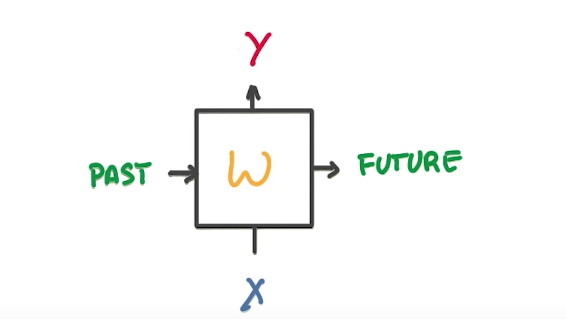 Y
PAST W FUTURE
X